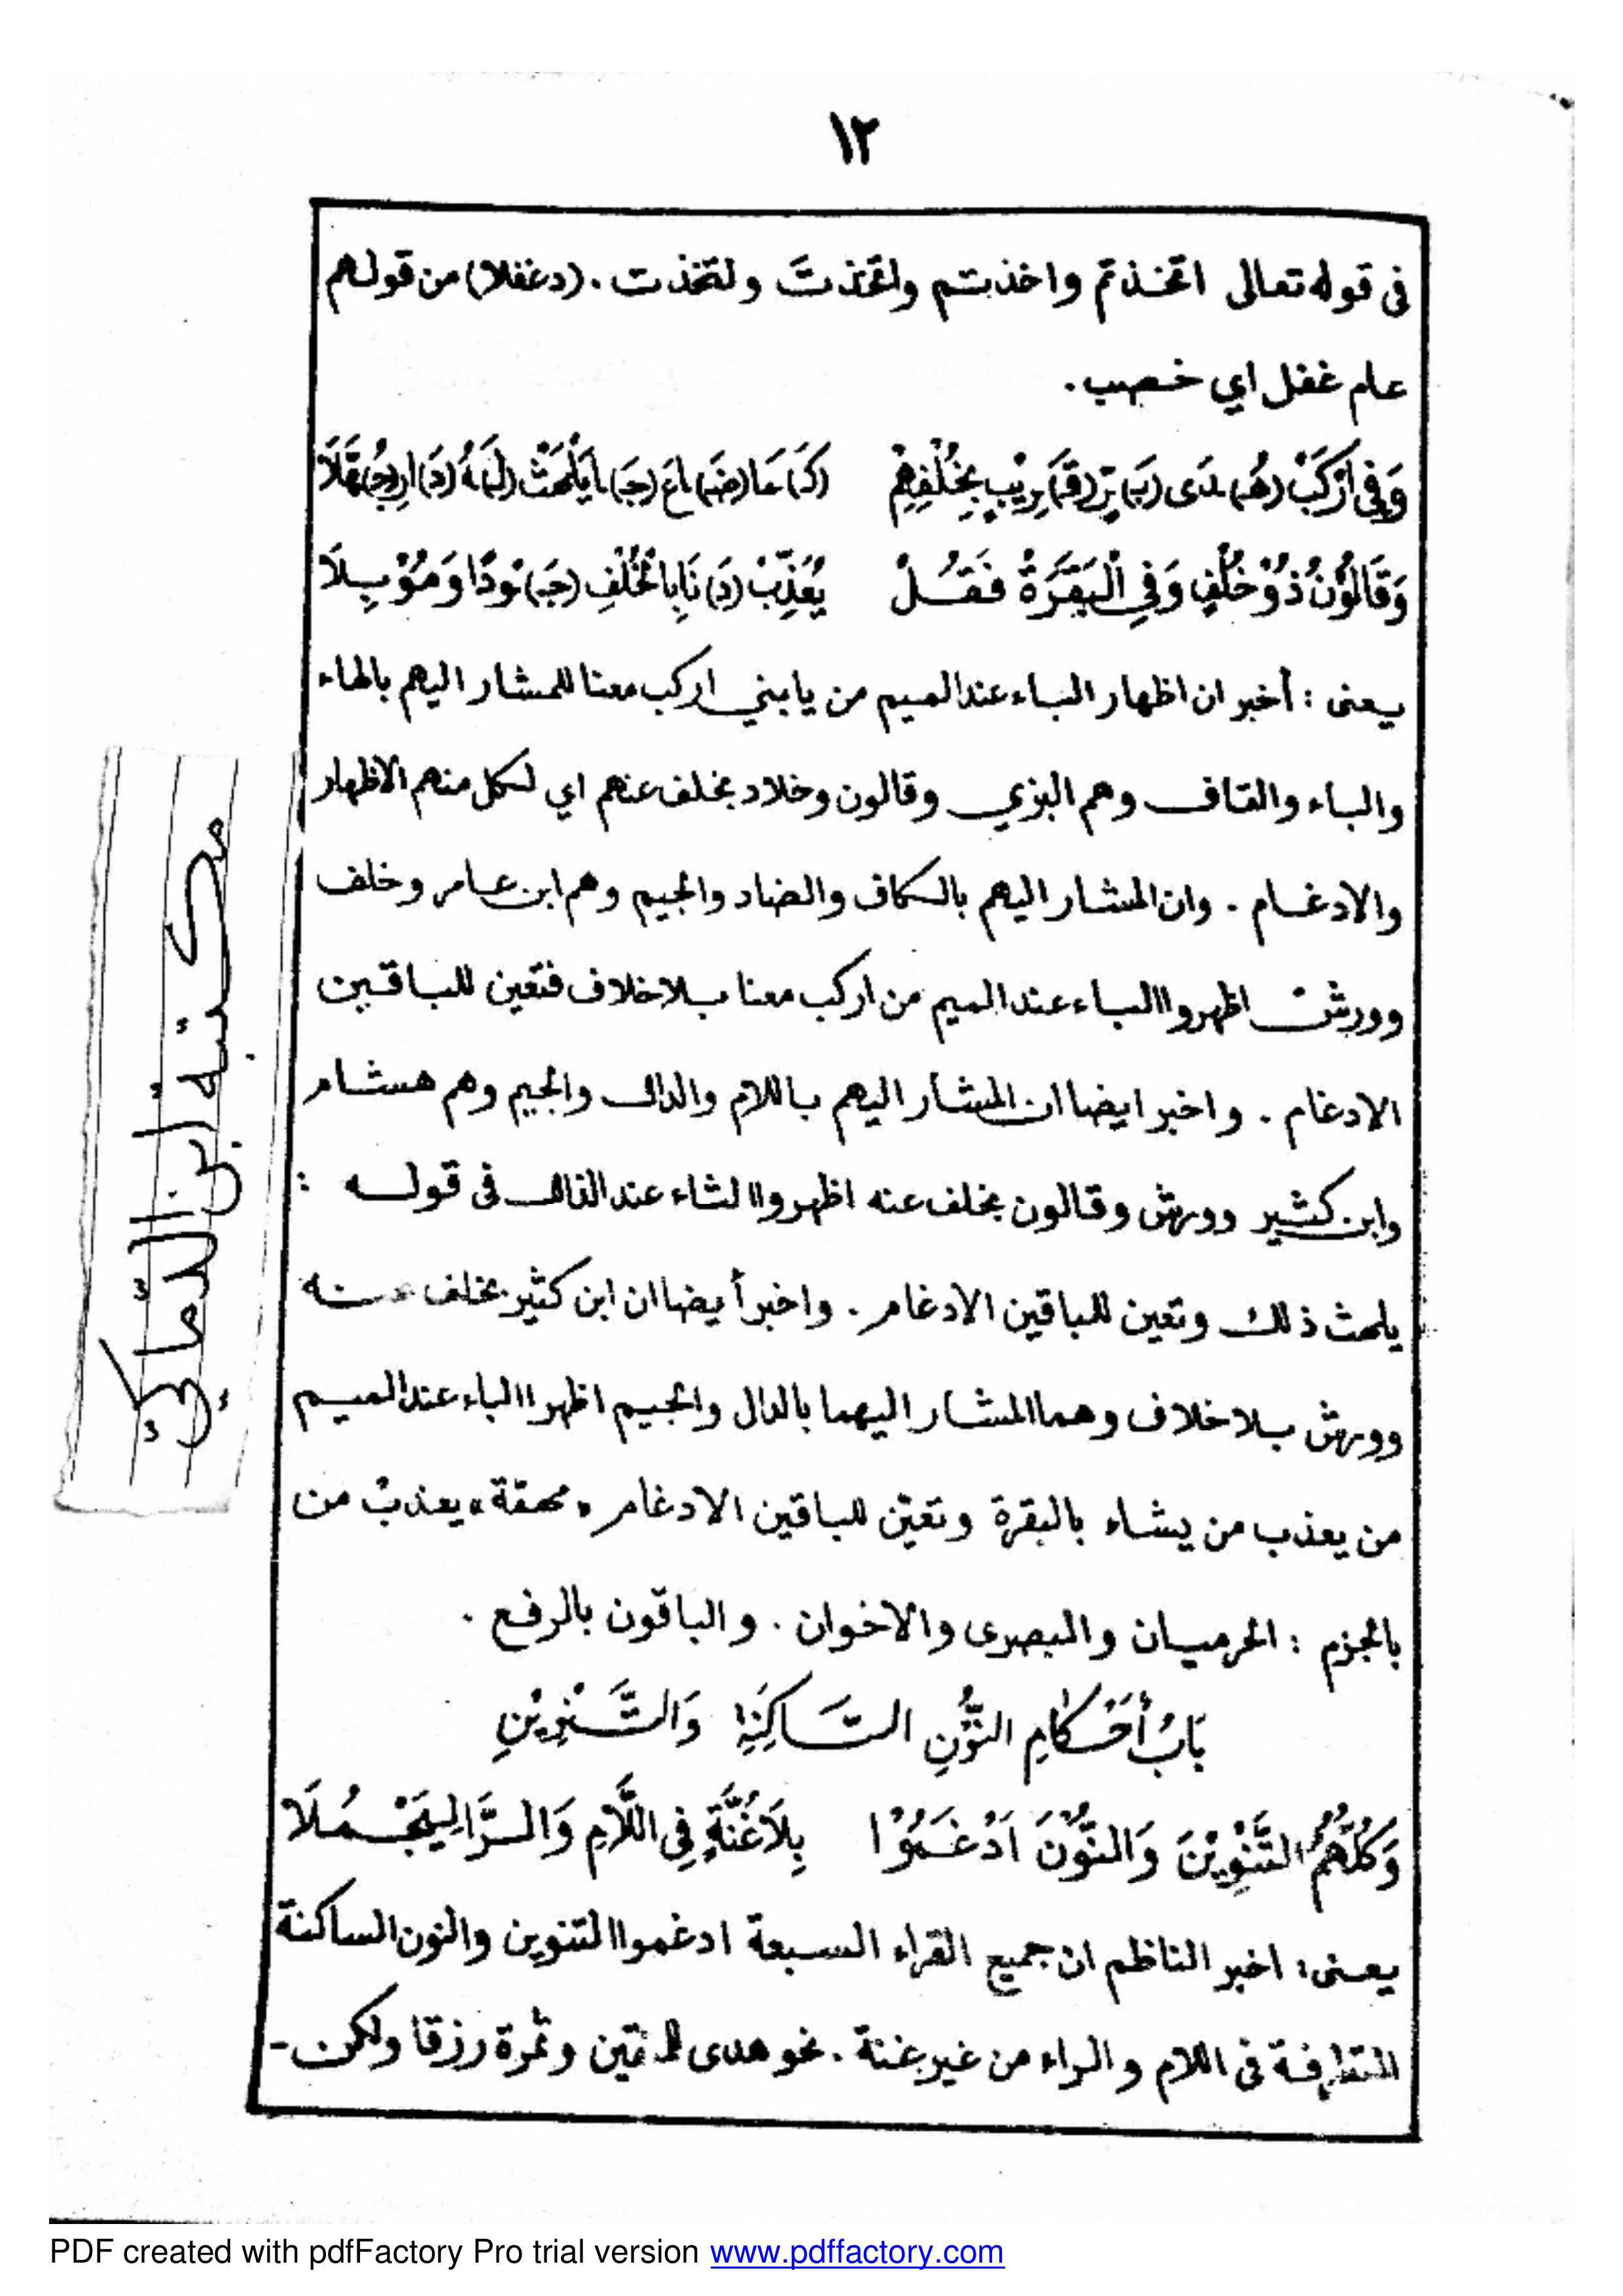 ١٢
فى قوله تعالى اتخذتم واخذتم واتخذتَ ولتخذت . (دغفلا) من قولهم
عام غفل اي خصيب .
وَفِي ارْكَبْ (هُـ)ـدَى (بَـ)ـرٍّ (قَـ)ـرِيْبٍ بِخُلْفِهِمْ (كَـ)ـمَا (ضَـ)ـاعَ (جَـ)ـا يَلْهَثْ (لَـ)ـهُ (دَ)ارِ (جُـ)ـهَّلَا
وَقَالُوْنُ ذُوْ خُلْفٍ وَفِي الْبَقَرَةْ فَقُلْ يُعَذِّبْ (دَ)نَا بِالْخُلْفِ (جَـ)ـوْدًا وَمُوْبِلَا
يعنى : أخبر ان اظهار الباء عند الميم من يا بني اركب معنا للمشار اليهم بالهاء
والباء والقاف وهم البزي وقالون وخلاد بخلف عنهم اي لكل منهم الاظهار
والادغام . وان المشار اليهم بالكاف والضاد والجيم وهم ابن عامر وخلف
وورش اظهروا الباء عند الميم من اركب معنا بلا خلاف فتعين للباقين
الادغام . واخبر ايضا ان المشار اليهم باللام والدال والجيم وهم هشام
وابن كثير وورش وقالون بخلف عنه اظهروا الثاء عند الذال فى قوله :
يلهث ذلك وتعين للباقين الادغام . واخبر أيضا ان ابن كثير بخلف عنه
وورش بلا خلاف وهما المشار اليهما بالدال والجيم اظهرا الباء عند الميم
من يعذب من يشاء بالبقرة وتعين للباقين الادغام "محققة" يعذبْ من
بالجزم : الحرميان والبصرى والاخوان . والباقون بالرفع .
بَابُ أَحْكَامِ النُّوْنِ السَّاكِنَةِ وَالتَّنْوِيْنِ
وَكُلُّهُمُ التَّنْوِيْنَ وَالنُّوْنَ اَدْغَمُوْا بِلَا غُنَّةٍ فِى اللَّامِ وَالرَّا لِيَجْمُلَا
يعنى : اخبر الناظم ان جميع القراء السبعة ادغموا التنوين والنون الساكنة
المتطرفة فى اللام والراء من غير غنة . نحو هدى للمتقين وثمرة رزقا ولكن -
مكتبة ابن
PDF created with pdfFactory Pro trial version www.pdffactory.com